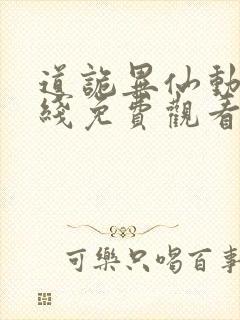 道詭異仙動
綫免費觀看
可樂只喝百事